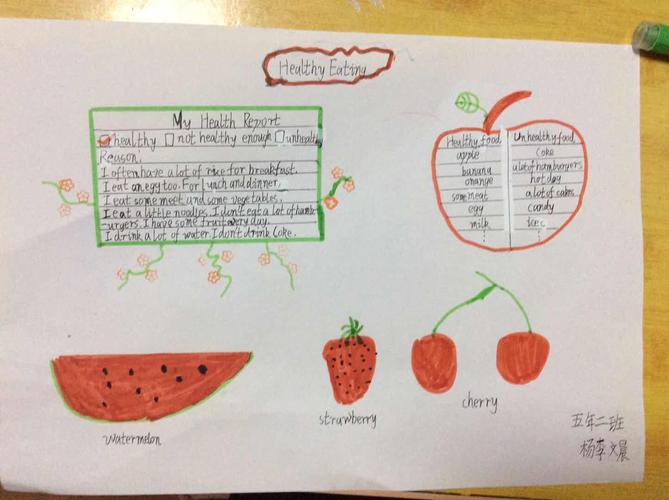 Healthy Eating
My Health Report
healthy not healthy enough unhealthy
Reason.
I often have a lot of rice for breakfast.
I eat an egg too. For lunch and dinner,
I eat some meat and some vegetables.
I eat a little noodles. I don't eat a lot of hamb-
urgers. I have some fruit every day.
I drink a lot of water. I don't drink Coke.
Healthy food
apple
banana
orange
some meat
egg
milk
⋮
Unhealthy food
Coke
a lot of hamburgers
hot dog
a lot of cakes
candy
⋮
watermelon
strawberry
cherry
五年二班
杨李文晨